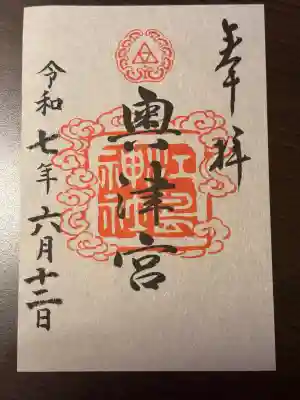 奉拝
奧津宮
江島神社
令和七年六月十二日